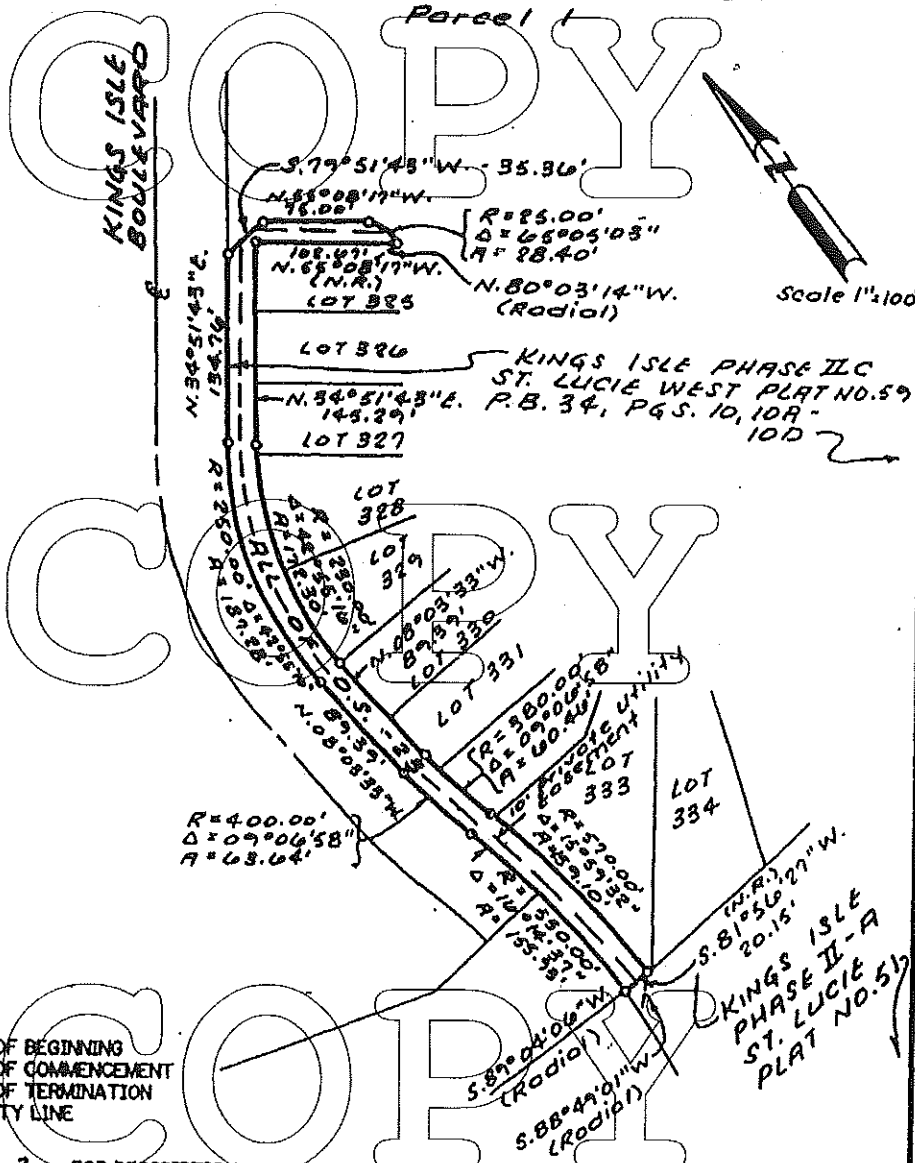 Parcel 1
COPY
KINGS ISLE
BOULEVARD
S.79°51'43"W. - 35.36'
N.55°08'17"W.
95.00'
R=25.00'
Δ=65°05'03"
A=28.40'
108.67'
N.55°08'17"W.
(N.R.)
N.80°03'14"W.
(Radial)
Scale 1"=100
LOT 325
LOT 326
N.34°51'43"E.
134.76'
KINGS ISLE PHASE II C
ST. LUCIE WEST PLAT NO.59
P.B. 34, PGS. 10, 10A-
10D
N.34°51'43"E.
145.29'
LOT 327
COPY
LOT
328
LOT
329
R=250.00'
Δ=42°55'16"
A=187.28'
R=230.00'
Δ=42°55'16"
A=172.30'
ALL OF O.S.
N.08°03'33"W.
89.39'
LOT 330
LOT 331
N.08°03'33"W.
89.39'
R=380.00'
Δ=09°06'58"
A=60.46'
10' Private Utility
Easement
LOT
333
LOT
334
R=400.00'
Δ=09°06'58"
A=63.64'
R=570.00'
A=159.10'
R=550.00'
Δ=16°14'37"
(N.R.)
S.81°56'27"W.
20.15'
KINGS ISLE
PHASE II-A
ST. LUCIE
PLAT NO.51
S.89°04'06"W.
(Radial)
S.88°49'01"W.
(Radial)
COPY
OF BEGINNING
OF COMMENCEMENT
OF TERMINATION
TY LINE